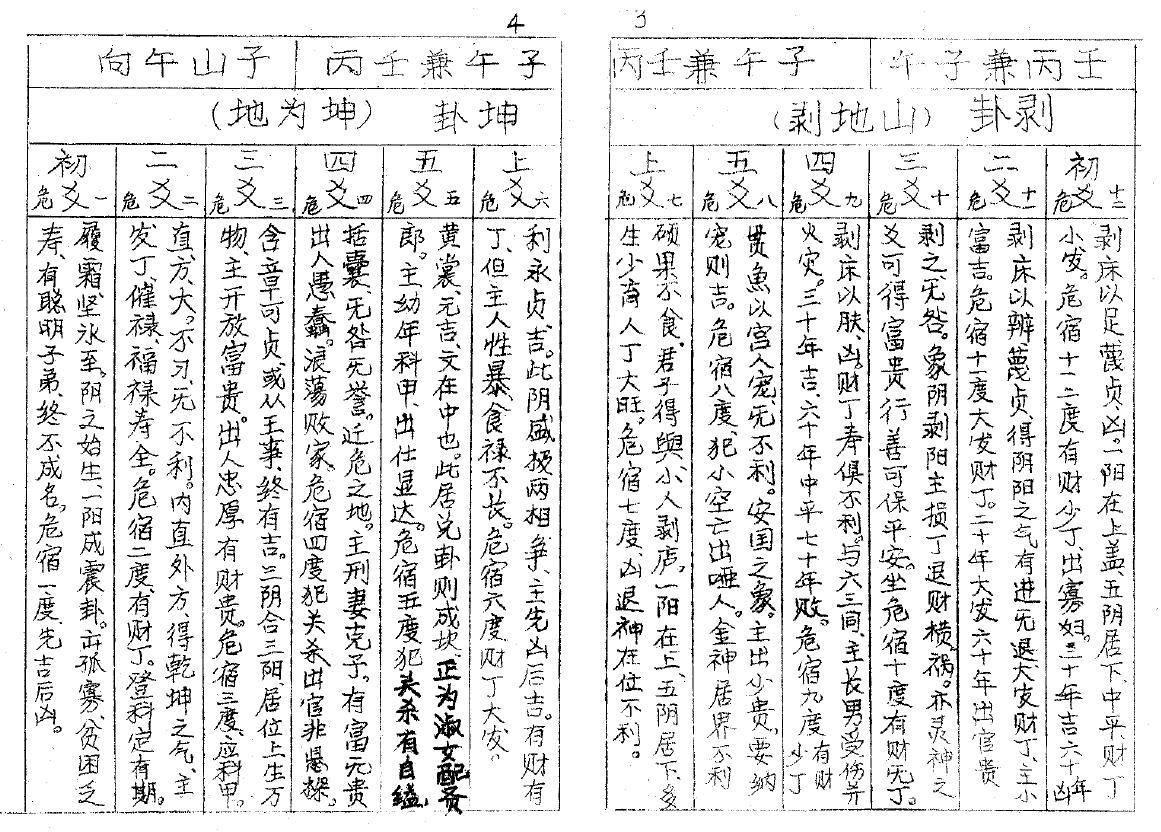 3
壬丙兼子午
子午兼壬丙
剥卦（山地剥）
初爻
危十二
剥床以足，蔑贞，凶。一阳在上盖，五阴居下，中平，财丁
小发。危宿十二度有财少丁，出寡妇。三十年吉六十年凶
二爻
危十一
剥床以辨，蔑贞，得阴阳之气有进无退大发财丁，主小
富吉。危宿十一度大发财丁。二十年大发六十年出官贵
三爻
危十
剥之，无咎。象阴剥阳主损丁退财横祸。亦灵神之
爻可得富贵行善可保平安。坐危宿十度有财无丁。
四爻
危九
剥床以肤，凶。财丁寿俱不利。与六三同，主长男受伤并
火灾。三十年吉，六十年中平七十年败。危宿九度有财少丁
五爻
危八
贯鱼以宫人宠，无不利。安国之象。主出小贵，要纳
宠则吉。危宿八度，犯小空亡出哑人。金神居界不利
上爻
危七
硕果不食，君子得舆，小人剥庐，一阳在上，五阴居下，多
生少育人丁大旺。危宿七度，凶退神在位不利。
4
子午兼壬丙
子山午向
坤卦（坤为地）
上爻
危六
利永贞，吉。此阴盛极两相争，主先凶后吉。有财有
丁，但主人性暴，食禄不长。危宿六度财丁大发。
五爻
危五
黄裳，元吉，文在中也。此居兑卦则成坎，正为淑女配贤
郎。主幼年科甲，出仕显达。危宿五度犯关杀有自缢，
四爻
危四
括囊，无咎无誉。迁危之地。主刑妻克子。有富无贵
出人愚蠢。浪荡败家，危宿四度犯关杀出官非愚操。
三爻
危三
含章可贞，或从王事，终有吉。三阴合三阳，居位上生万
物，主开放富贵。出人忠厚有财贵。危宿三度，应科甲。
二爻
危二
直，方，大。不习，无不利。内直外方，得乾坤之气，主
发丁，催禄，福禄寿全。危宿二度，有财丁。登科定有期。
初爻
危一
履霜，坚冰至。阴之始生，一阳成震卦。出孤寡，贫困乏
寿，有聪明子弟，终不成名。危宿一度，先吉后凶。